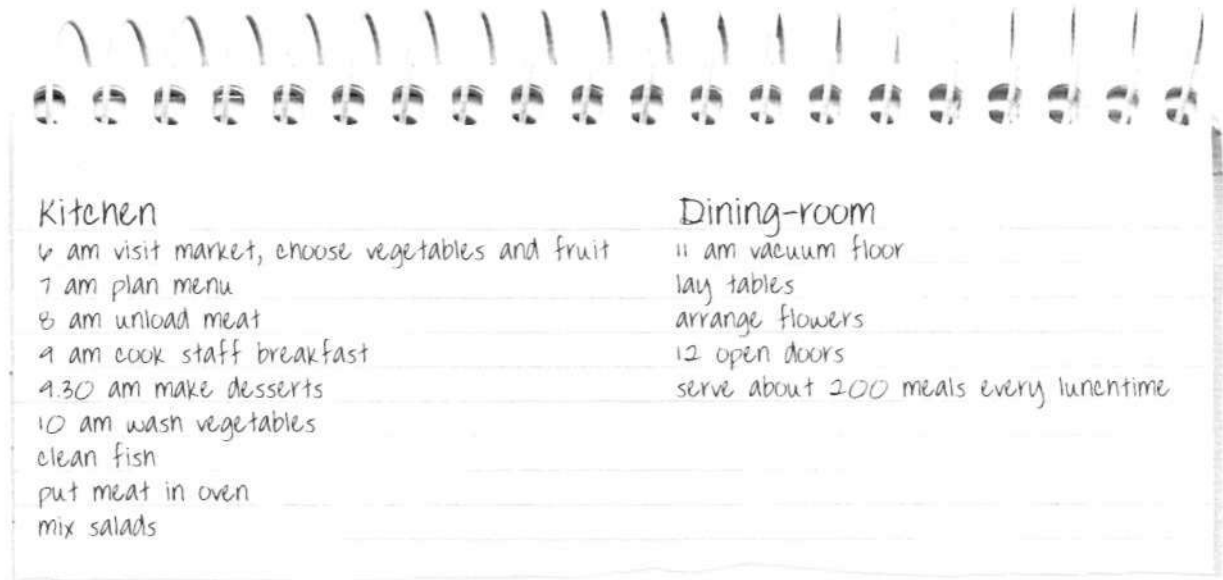 Kitchen
6 am visit market, choose vegetables and fruit
7 am plan menu
8 am unload meat
9 am cook staff breakfast
9.30 am make desserts
10 am wash vegetables
clean fish
put meat in oven
mix salads
Dining-room
11 am vacuum floor
lay tables
arrange flowers
12 open doors
serve about 200 meals every lunchtime